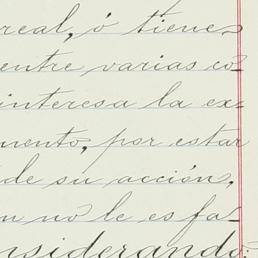 real, ó tiene
entre varias co-
interesa la ex-
mento, por estar
de su acción,
n no le es fa-
nsiderando: